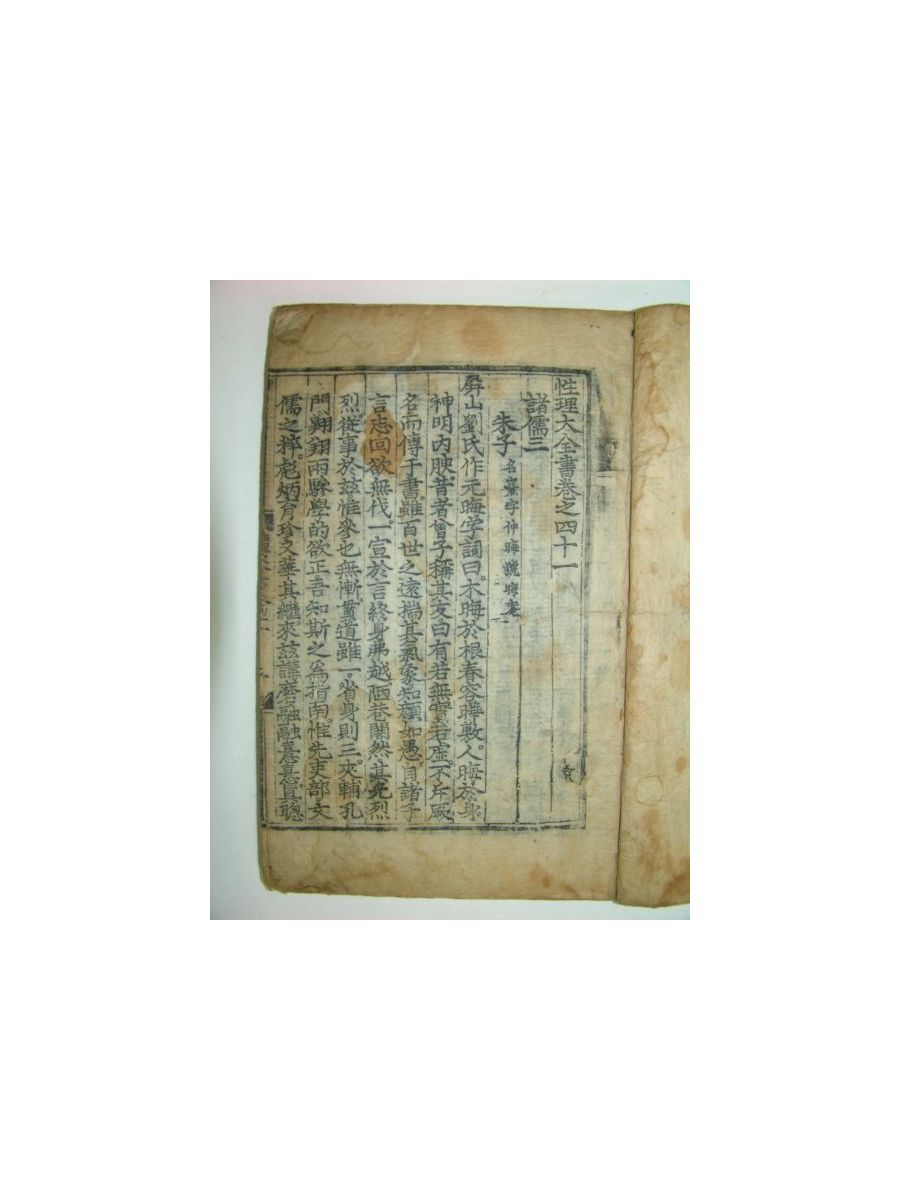 性理大全書卷之四十一
諸儒三
朱子 名熹字仲晦號晦庵
屛山劉氏作元晦字詞曰木晦於根春容曄敷人晦於身
神明內腴昔者曾子稱其友曰有若無實若虛不斥厥
名而傳于書雖百世之遠揣其氣象知顔如愚自諸子
言志回欲無伐一宣於言終身弗越陋巷闇然其光烈
烈從事於玆惟參也無慚貫道雖一省身則三夾輔孔
門翺翔兩驂學的欲正吾知斯之爲指南惟先吏部文
儒之粹彪炳育珍文華其繼來玆講磨融融熹熹眞聰